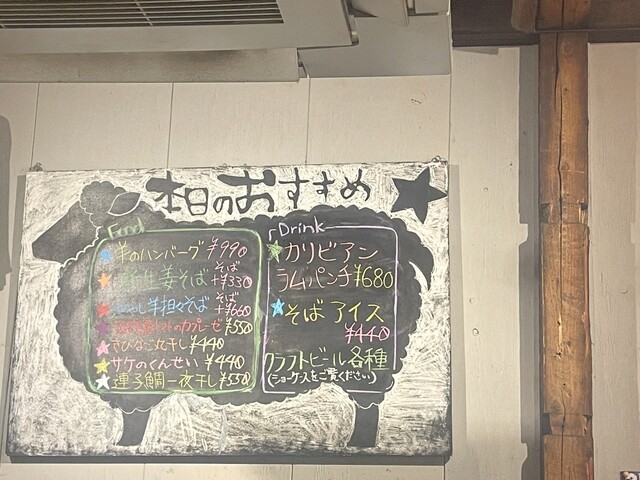 本日のおすすめ
Food
羊のハンバーグ ¥990
新生姜そば そば+¥330
羊担々そば そば+¥660
のカプレーゼ ¥550
きびなご丸干し ¥440
サケのくんせい ¥440
連子鯛一夜干し ¥550
Drink
カリビアン
ラムパンチ ¥680
そばアイス
¥440
クラフトビール各種
(ショーケースをご覧ください)